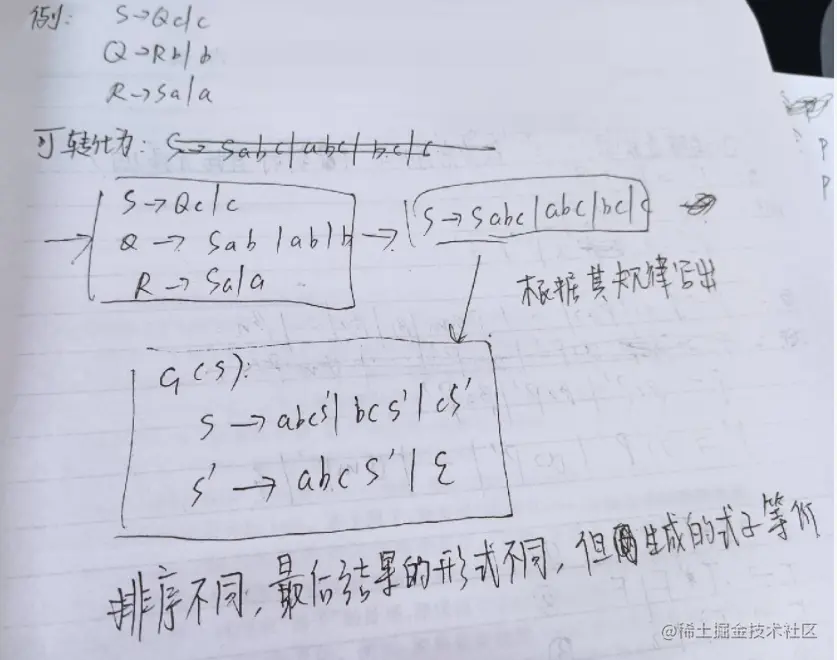 例: S→Qc|c
Q→Rb|b
R→Sa|a
可转化为: S→Sabc|abc|bc|c
S→Qc|c
Q→Sab|ab|b
R→Sa|a
→
→
S→Sabc|abc|bc|c
根据其规律写出
G(S):
S→abcS'|bcS'|cS'
S'→abcS'|ε
排序不同,最后结果的形式不同,但生成的式子等价
P
P
@稀土掘金技术社区